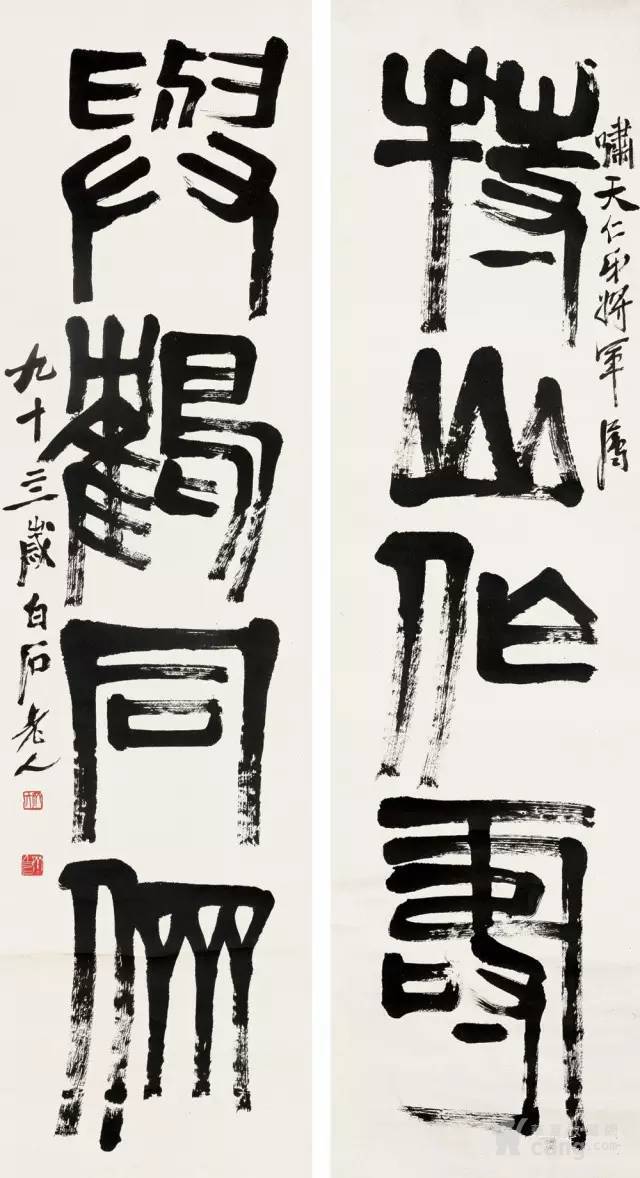 嘯天仁弟將軍屬
持山作壽
與鶴同
九十三歲白石老人
cang.com